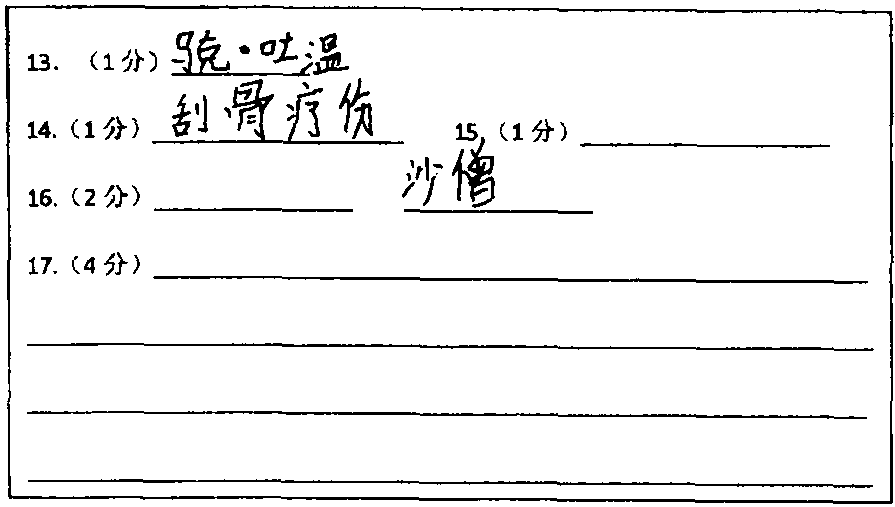 13. （1分）骁·吐温
14.（1分）刮骨疗伤 15.（1分）
16.（2分） 沙僧
17.（4分）